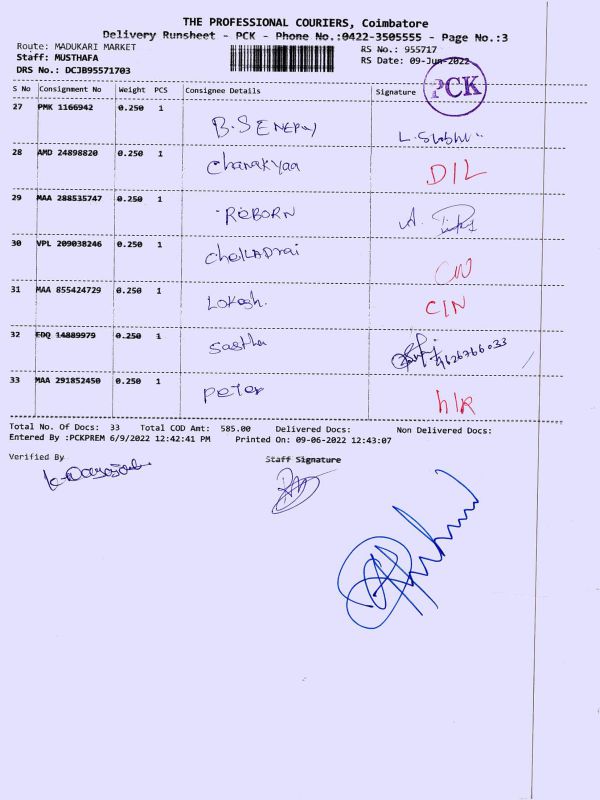 THE PROFESSIONAL COURIERS, Coimbatore
Delivery Runsheet - PCK - Phone No.:0422-3505555 - Page No.:3
Route: MADUKARI MARKET RS No.: 955717
Staff: MUSTHAFA RS Date: 09-Jun-2022
DRS No.: DCJB95571703
PCK
S No Consignment No Weight PCS Consignee Details Signature
27 PMK 1166942 0.250 1 B.S ENERGY
28 AMD 24898820 0.250 1 Chanakyaa D/L
29 MAA 288535747 0.250 1 REBORN
30 VPL 209038246 0.250 1 C/N
31 MAA 855424729 0.250 1 Lokesh. C/N
32 EDQ 14889979 0.250 1 Sastha
33 MAA 291852450 0.250 1 Peter
Total No. Of Docs: 33 Total COD Amt: 585.00 Delivered Docs: Non Delivered Docs:
Entered By :PCKPREM 6/9/2022 12:42:41 PM Printed On: 09-06-2022 12:43:07
Verified By Staff Signature